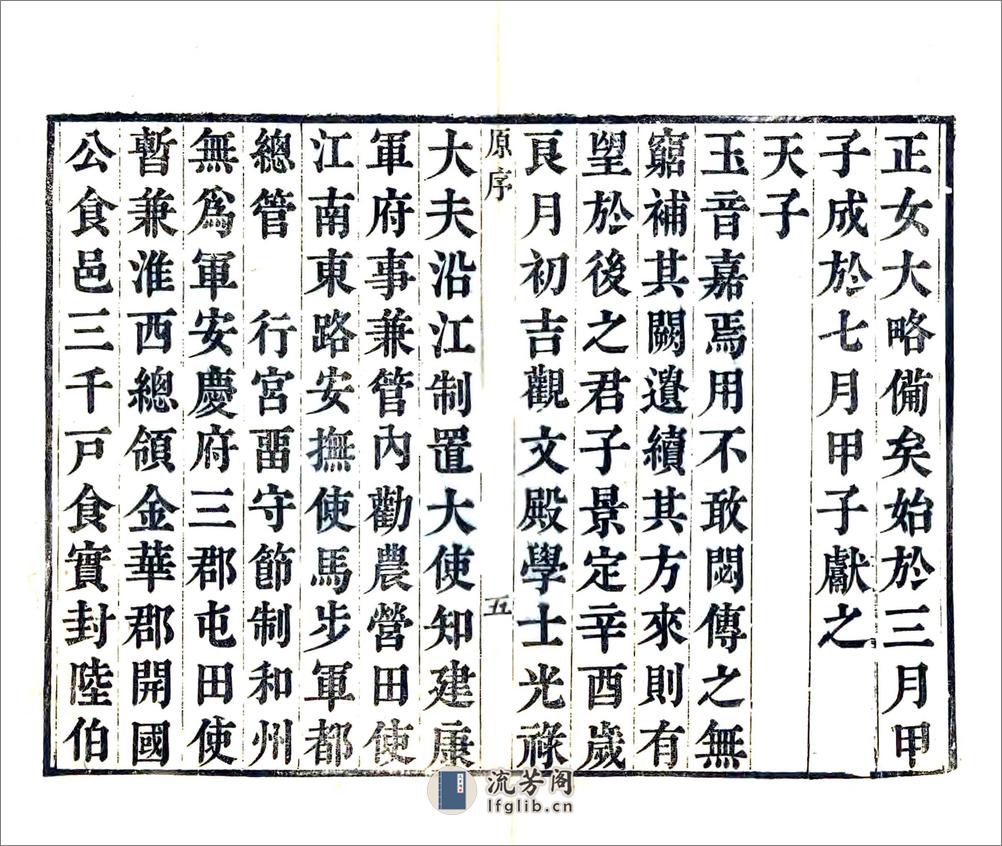 正女大略備矣始於三月甲
子成於七月甲子獻之
天子
玉音嘉焉用不敢閟傳之無
窮補其闕遺續其方來則有
望於後之君子景定辛酉歲
良月初吉觀文殿學士光祿
原序
五
大夫沿江制置大使知建康
軍府事兼管內勸農營田使
江南東路安撫使馬步軍都
總管 行宮畱守節制和州
無爲軍安慶府三郡屯田使
暫兼淮西總領金華郡開國
公食邑三千戸食實封陸伯
流芳阁
lfglib.cn